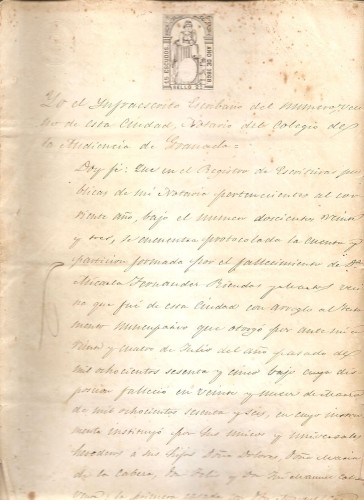 SELLO 9º
AÑO DE 1868
Yo el Infraescrito Escribano del numero, veci
no de esta Ciudad, Notario del Colegio de
la Audiencia de Granada=
Doy fé: Que en el Registro de Escrituras pu
blicas de mi Notaria pertenecientes al cor
riente año, bajo el numero doscientos veinte
y tres, se encuentra protocolada la cuenta y
particion formada por el fallecimiento de Dª
Micaela Fernandez
no que fué de esta Ciudad con arreglo al testa
mento que otorgó por ante mi en
veinte y nueve de Julio del año pasado de
mil ochocientos sesenta y cinco bajo cuya dis
posicion falleció en veinte y nueve de Marzo
de mil ochocientos sesenta y seis, en cuyo instru
mento instituyó por sus unicos y universales
herederos a sus hijos Doña Dolores, Doña Maria
de la Cabeza, Don y Don
la primera casada